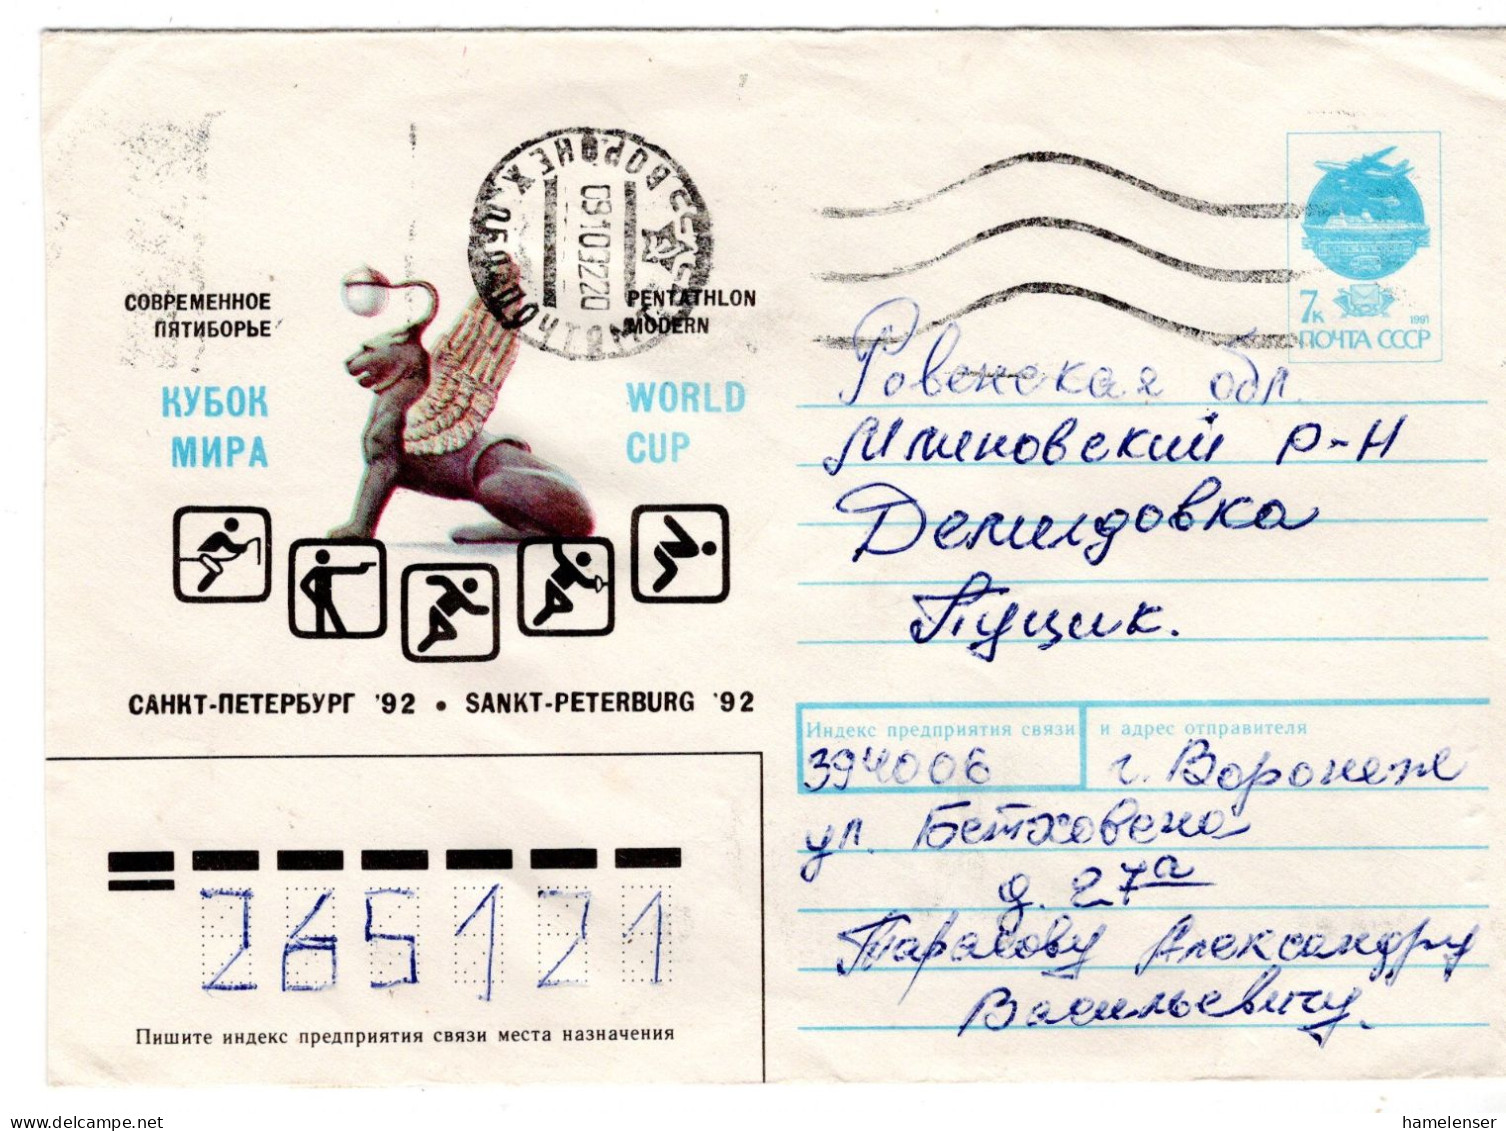 СОВРЕМЕННОЕ
ПЯТИБОРЬЕ
КУБОК
МИРА
PENTATHLON
MODERN
WORLD
CUP
ВОРОНЕЖ
091092 20
САНКТ-ПЕТЕРБУРГ '92 • SANKT-PETERBURG '92
7к
1991
ПОЧТА СССР
Ровенская обл.
Млиновский р-н
Демидовка
Пущик.
Индекс предприятия связи и адрес отправителя
394006 г. Воронеж
ул. Бетховена
д. 27а
Тарасову Александру
Васильевичу.
265121
Пишите индекс предприятия связи места назначения
hamelenser